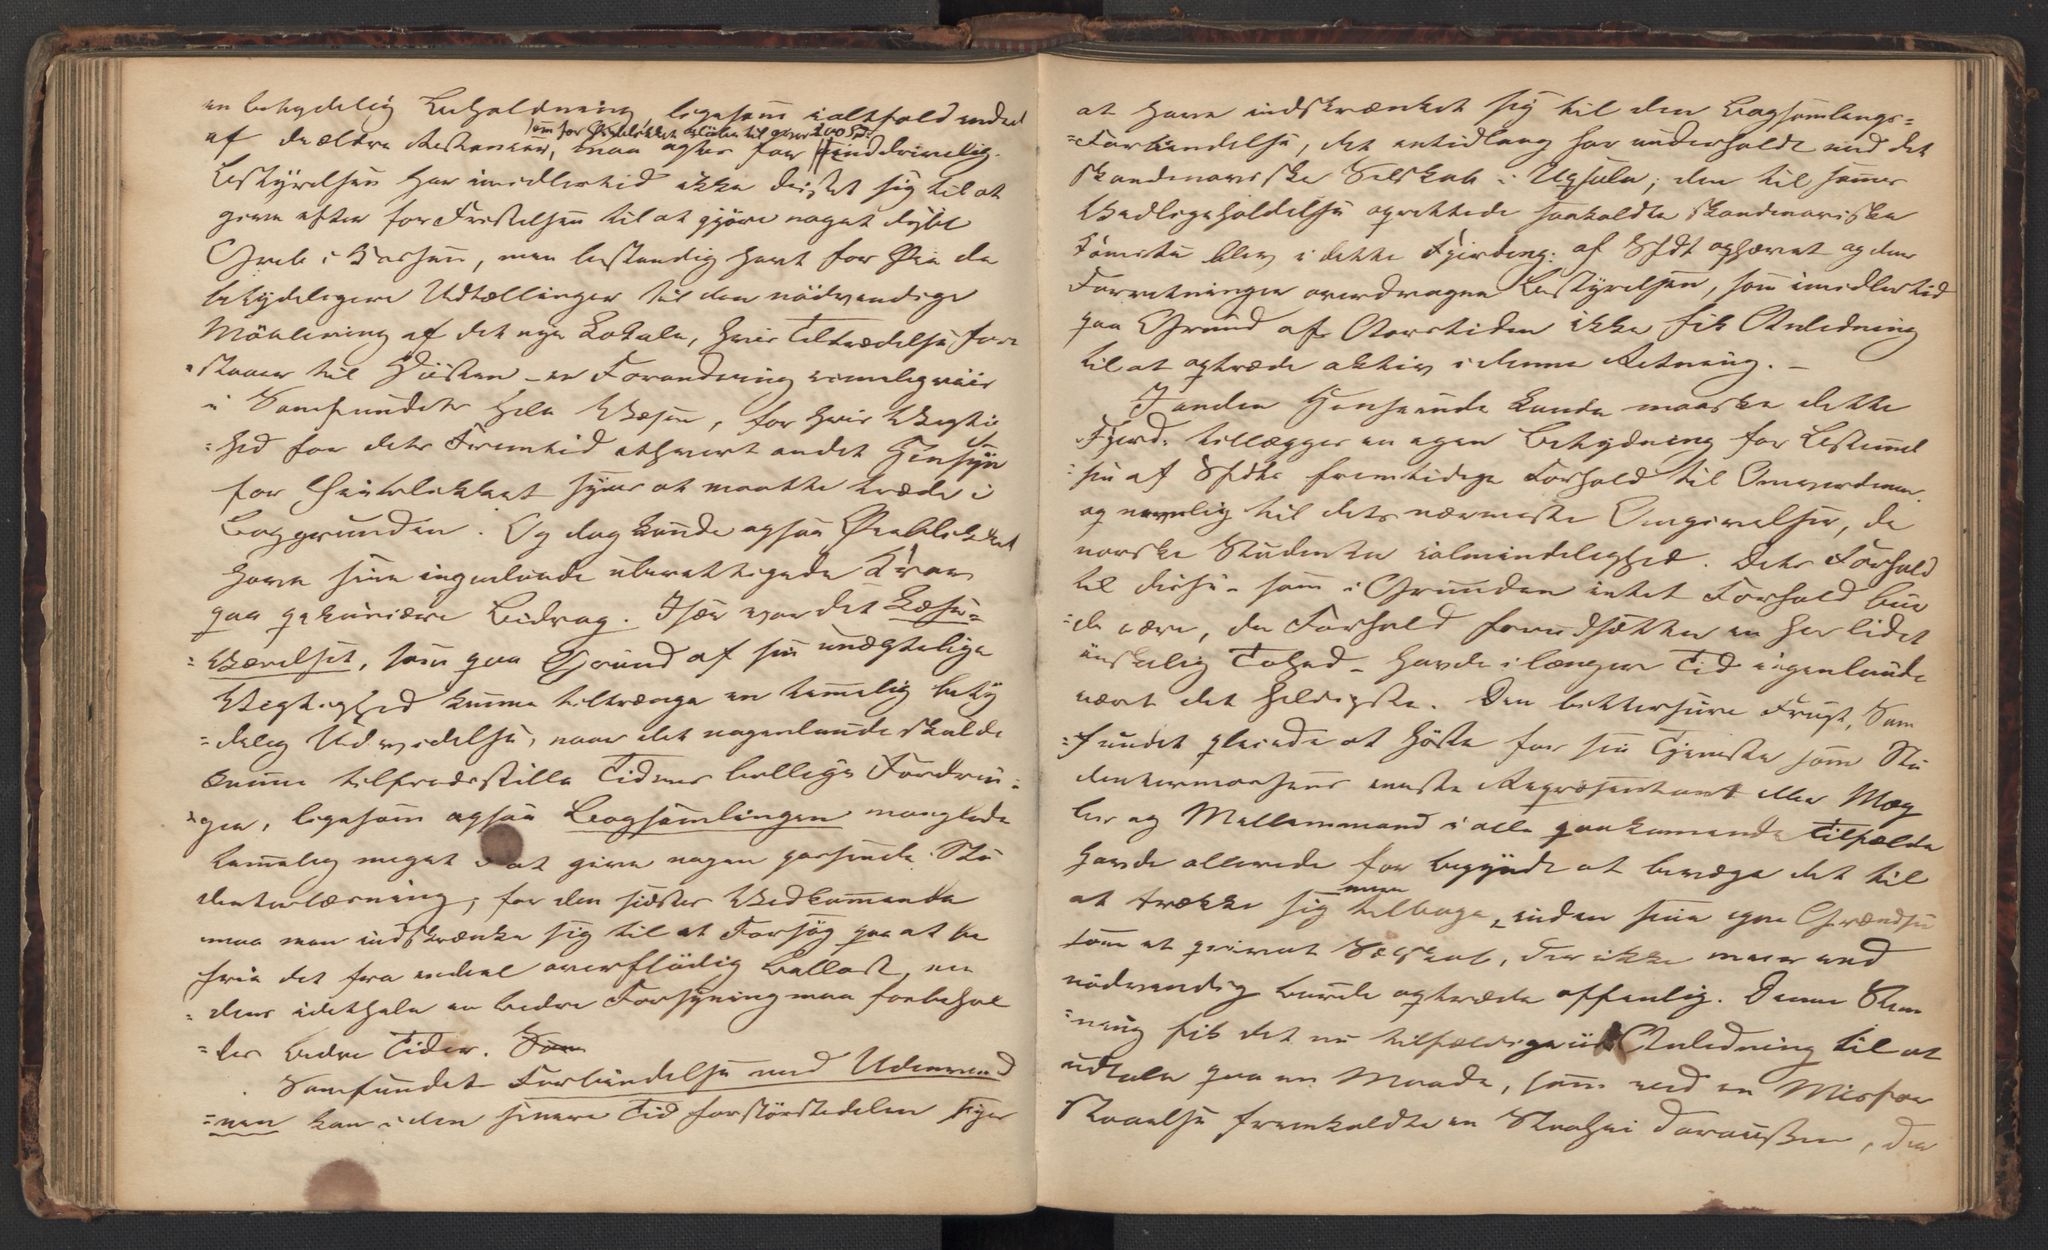 en betydelig Beholdning ligesom i altfald endel
som for Øieblikket beløber til over 200 Spd.
af de ældre Restancer, maa agtes for uinddrivelig.
Bestyrelsen har imidlertid ikke dristet sig til at
give efter for Fristelsen til at gjøre noget dybt
Greb i Kassen, men bestandig havt for Øie de
betydeligere Udtællinger til den nödvendige
Möblering af det nye Lokale, hvis Tiltrædelse fore
=staaer til Hösten – en Forandring rimeligviis
i Samfundets hele Væsen, for hvis Vigtig
=hed for dets Fremtid ethvert andet Hensyn
for Øieblikket synes at maatte træde i
Baggrunden. Og dog kunde ogsaa Øieblikket
have sine ingenlunde uberettigede Krav
paa pekuniære Bidrag. Især var det Læse=
=Værelset, som paa Grund af sin unægtelige
Vigtighed kunne tiltrænge en temelig bety
=delig Udvidelse, naar det nogenlunde skulde
kunne tilfredsstille Tidens billige Fordrin=
=ger, ligesom ogsaa Bogsamlingen manglede
temelig meget i at give nogen passende Stu
denterlæsning; for den sidstes Vedkommende
maa man indskrænke sig til et Forsøg paa at be
frie det fra endel overflödig Ballast, me
=dens idethele en bedre Forsyning maa forbehol
=des bedre Tider. Sam
Samfundets Forbindelse med Udenverd
=nen kan i den senere Tid forstörstedelen siges
at have indskrænket sig til den Bogsamlings=
=Forbindelse, det entidlang har underholdt med det
skandinaviske Selskab i Upsala; den til sammes
Vedligeholdelse oprettede saakaldte skandinaviske
Komitee blev i dette Fjerding: af Sfdt ophævet og dens
Forretninger overdragne Bestyrelsen, som imidlertid
paa Grund af Aarstiden ikke fik Anledning
til at optræde aktiv i denne Retning. –
I anden Henseende kunde maaske dette
Fjerd: tillægges en egen Betydning for Bestemmel
=sen af Sfdts fremtidige Forhold til Omverdenen
og navnlig til dets nærmeste Omgivelser, de
norske Studenter ialmindelighed. Dets Forhold
til disse – som i Grunden intet Forhold bur
=de være, da Forhold forudsætter en her lidet
önskelig Tohed – havde i længere Tid ingenlunde
været det heldigste. Den bittersure Frugt, Sam
=fundet pleiede at höste for sin Tjeneste som Stu
dentermassens eneste Repræsentant eller Mæg
ler og Mellemmand i alle paakommende Tilfælde
havde allerede før begyndt at bevæge det til
mere
at trække sig tilbage inden sine egne Grændser
som et privat Selskab, der ikke mere end
nödvendig burde optræde offenlig. Denne Stem
=ning fik det nu tilfældigviis Anledning til at
udtale paa en Maade, som ved en Misfor
staaelse fremkaldte en Skuffen derover, der